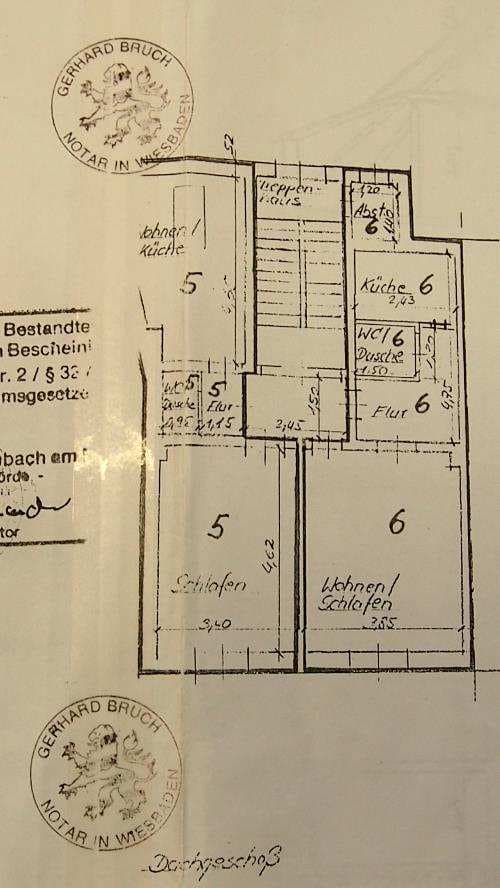 GERHARD BRUCH
NOTAR IN WIESBADEN
52
Treppen-
haus
1,20
Abst.
6
1,40
Wohnen/
Küche
5
Küche 6
2,43
Bestandte
Beschein
r. 2 / § 32
msgesetze
WC/ 6
Dusche
1,50
1,20
4,75
Flur 6
WC/ 5
Dusche
0,95
5
Flur
1,15
1,50
2,45
bach am
örde -
tor
5
4,62
Schlafen
3,40
6
Wohnen/
Schlafen
3,55
GERHARD BRUCH
NOTAR IN WIESBADEN
Dachgeschoß